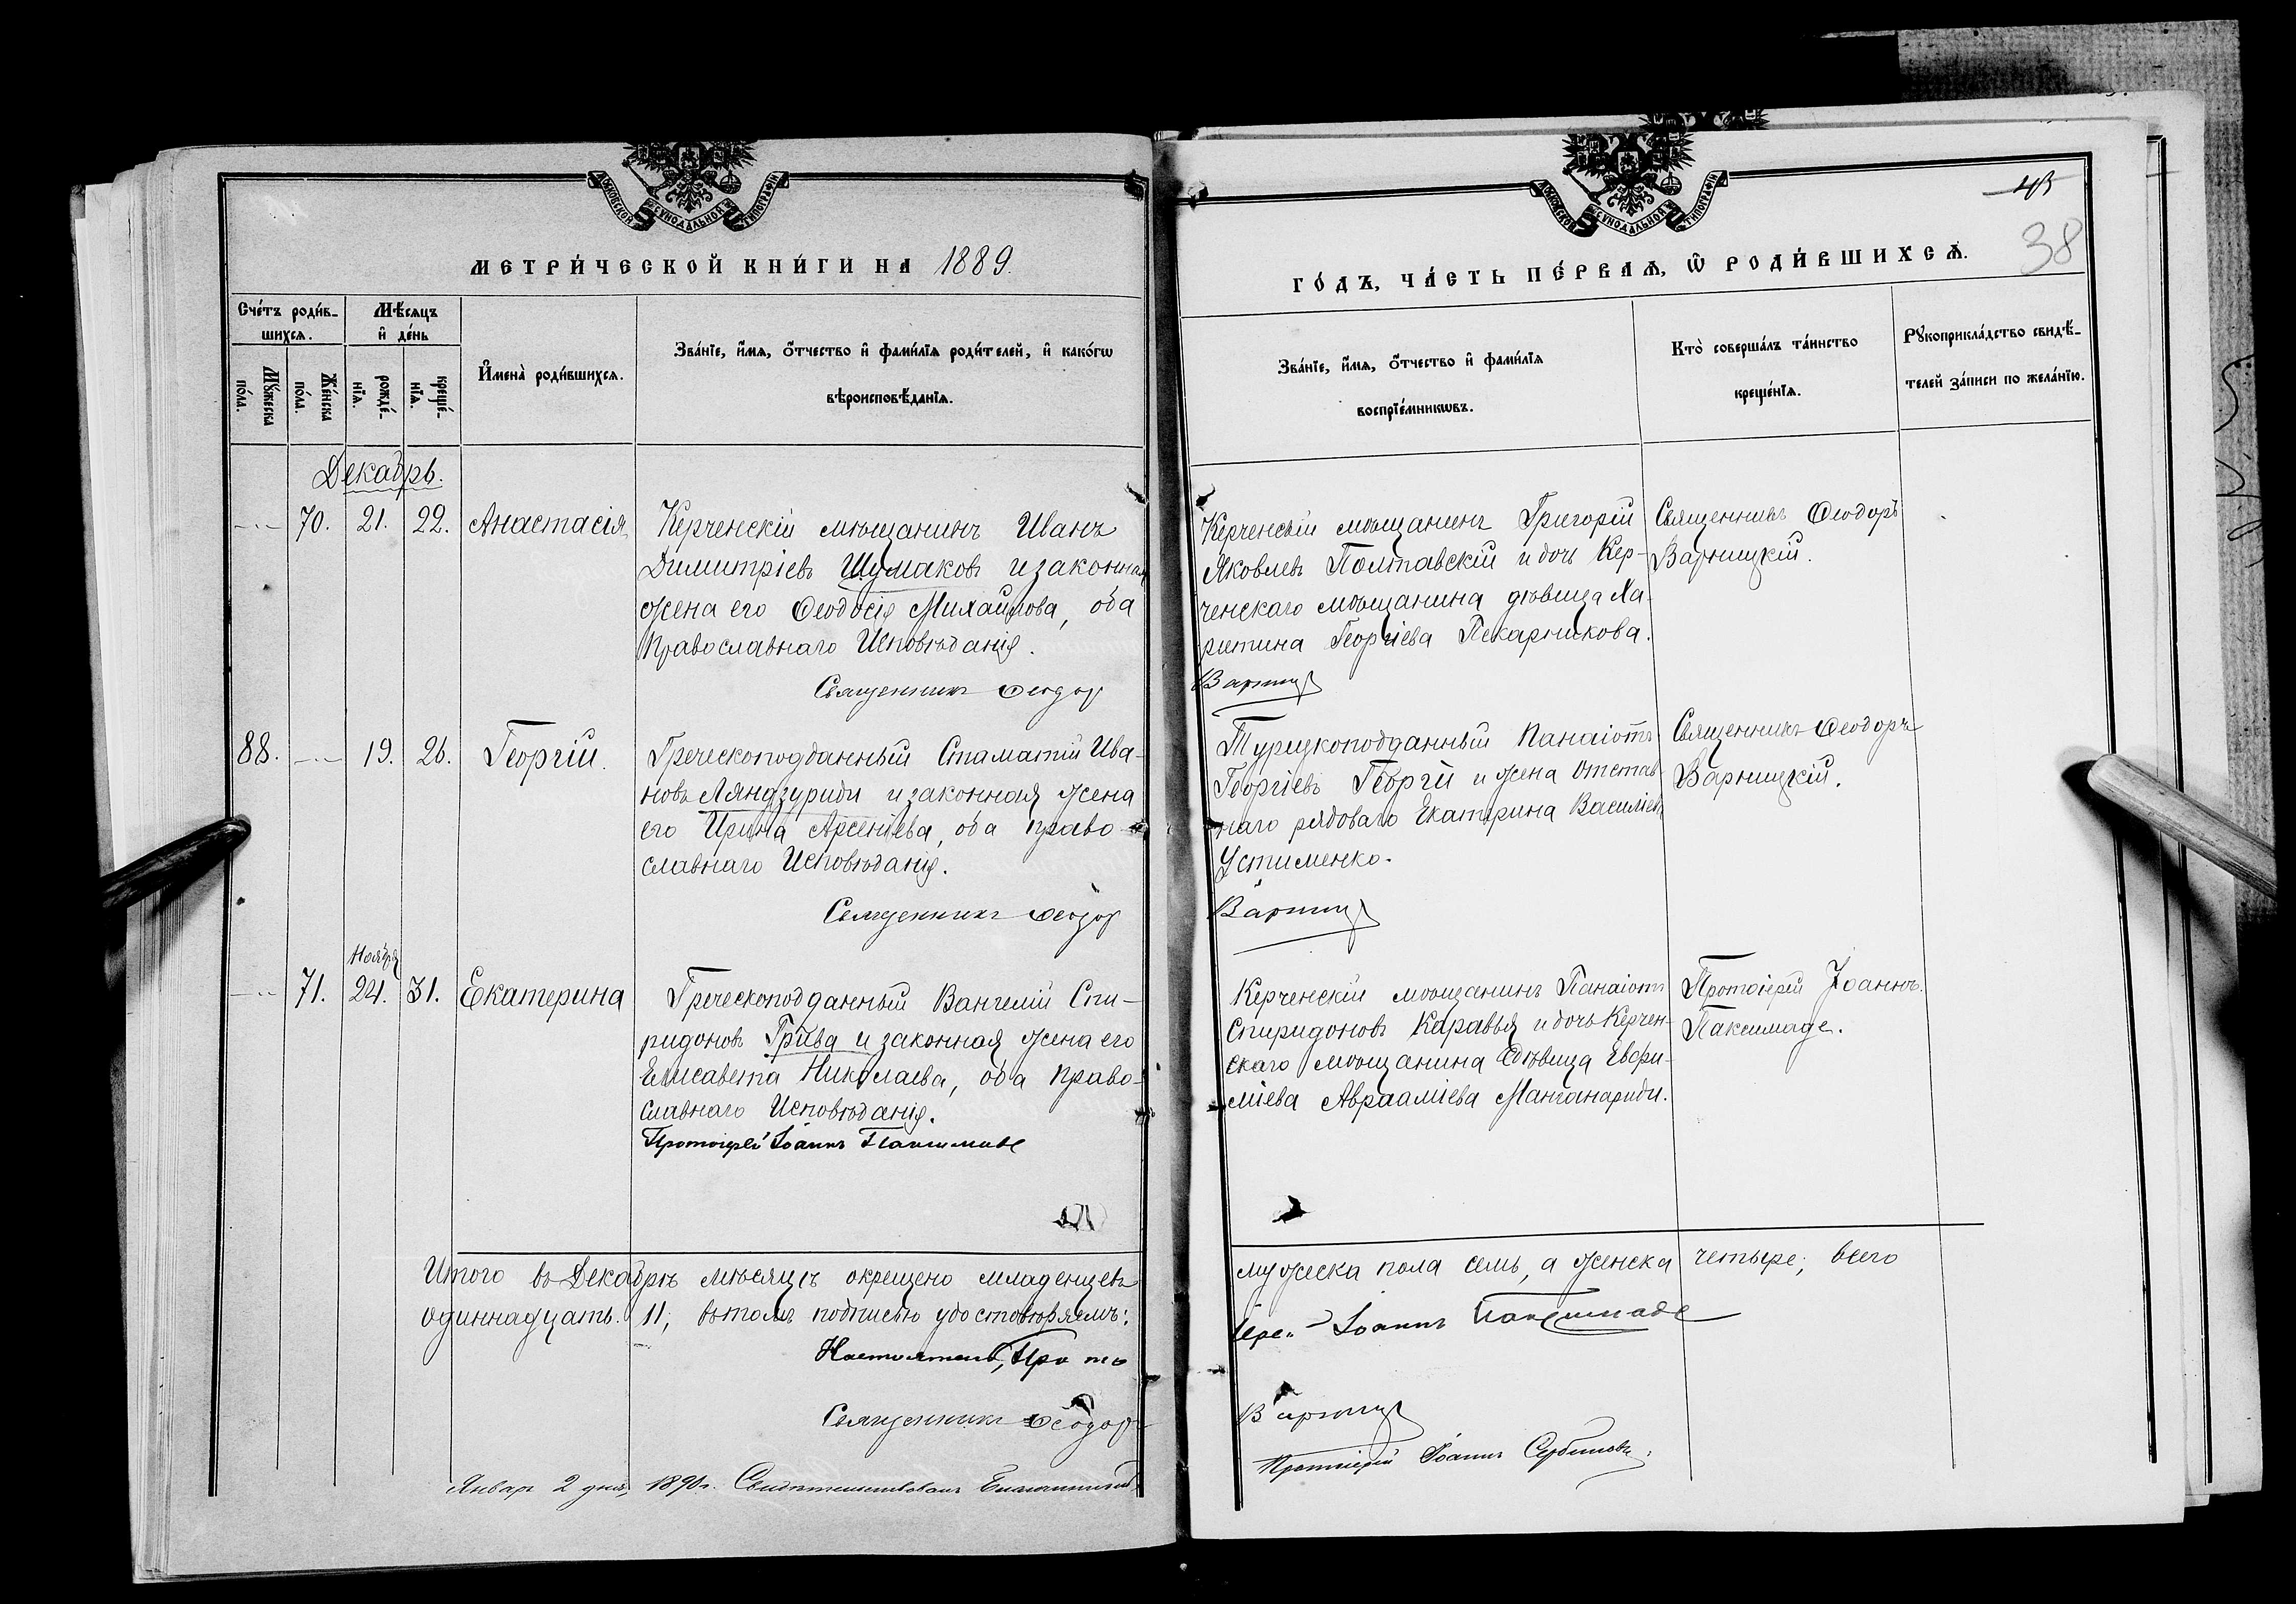 МОСКОВСКОЙ СУНОДАЛЬНОЙ ТИПОГРАФІИ
МЕТРИ́ЧЕСКОЙ КНИ́ГИ НА 1889.
Сче́тъ роди́в-
шихся.
Мѣ́сяцъ
и҆ де́нь
Мꙋ́жеска
по́ла.
Же́нска
по́ла.
рожде́-
нїѧ.
креще́-
нїѧ.
И҆мена̀ роди́вшихсѧ.
Зва́нїе, и҆́мѧ, ѻ҆́тчество и҆ фами́лїѧ роди́телей, и҆ како́гѡ
вѣроисповѣ́данїѧ.
Декабрь.
-..- 70. 21. 22. Анастасія
Керченскій мѣщанинъ Иванъ
Димитріевъ Шумаковъ и законная
жена его Ѳеодосія Михайлова, оба
Православнаго Исповѣданія.
Священникъ Ѳеодор
88. -..- 19. 26. Георгій.
Греческоподданный Стаматій Ива-
новъ Ляндзуриди и законная жена
его Ирина Арсеніева, оба право-
славнаго Исповѣданія.
Священникъ Ѳеодор
Ноября
-..- 71. 24. 31. Екатерина
Греческоподданный Вангелій Спи-
ридоновъ Грива и законная жена его
Елисавета Николаева, оба Право-
славнаго Исповѣданія.
Протоіерей Іоаннъ Паксимаде
Итого въ Декабрѣ мѣсяцѣ окрещено младенцевъ
одиннадцать. 11; въ томъ подписью удостовѣряемъ:
Настоятель, Прото
Священникъ Ѳеодор
Январь 2 дня, 1890 г. Свидѣтельствовалъ Благочинный
МОСКОВСКОЙ СУНОДАЛЬНОЙ ТИПОГРАФІИ
38
ГО́ДЪ, ЧА́СТЬ ПЕ́РВАѦ, Ѡ҆ РОДИ́ВШИХСѦ.
Зва́нїе, и҆́мѧ, ѻ҆́тчество и҆ фами́лїѧ
воспрїе́мникѡвъ.
Кто̀ соверша́лъ та́инство
креще́нїѧ.
Рꙋкоприкла́дство свидѣ́-
телей за́писи по жела́нїю.
Керченскій мѣщанинъ Григорій
Яковлевъ Полтавскій и дочь Кер-
ченскаго мѣщанина дѣвица Ха-
ритина Георгіева Пекарникова.
Варниц
Священникъ Ѳеодоръ
Варницкій.
Турецкоподданный Панаіотъ
Георгіевъ Георгій и жена отстав-
наго рядоваго Екатерина Василіев
Устименко.
Варниц
Священникъ Ѳеодоръ
Варницкій.
Керченскій мѣщанинъ Панаіотъ
Спиридоновъ Каравья и дочь Керчен-
скаго мѣщанина дѣвица Евфи-
міева Авраамiева Манганариди.
Протоіерей Іоаннъ
Паксимаде.
мужеска пола семь, а женска четыре; всего
іерей Іоаннъ Паксимаде
Варниц
Протоіерей Іоаннъ Сербиновъ.